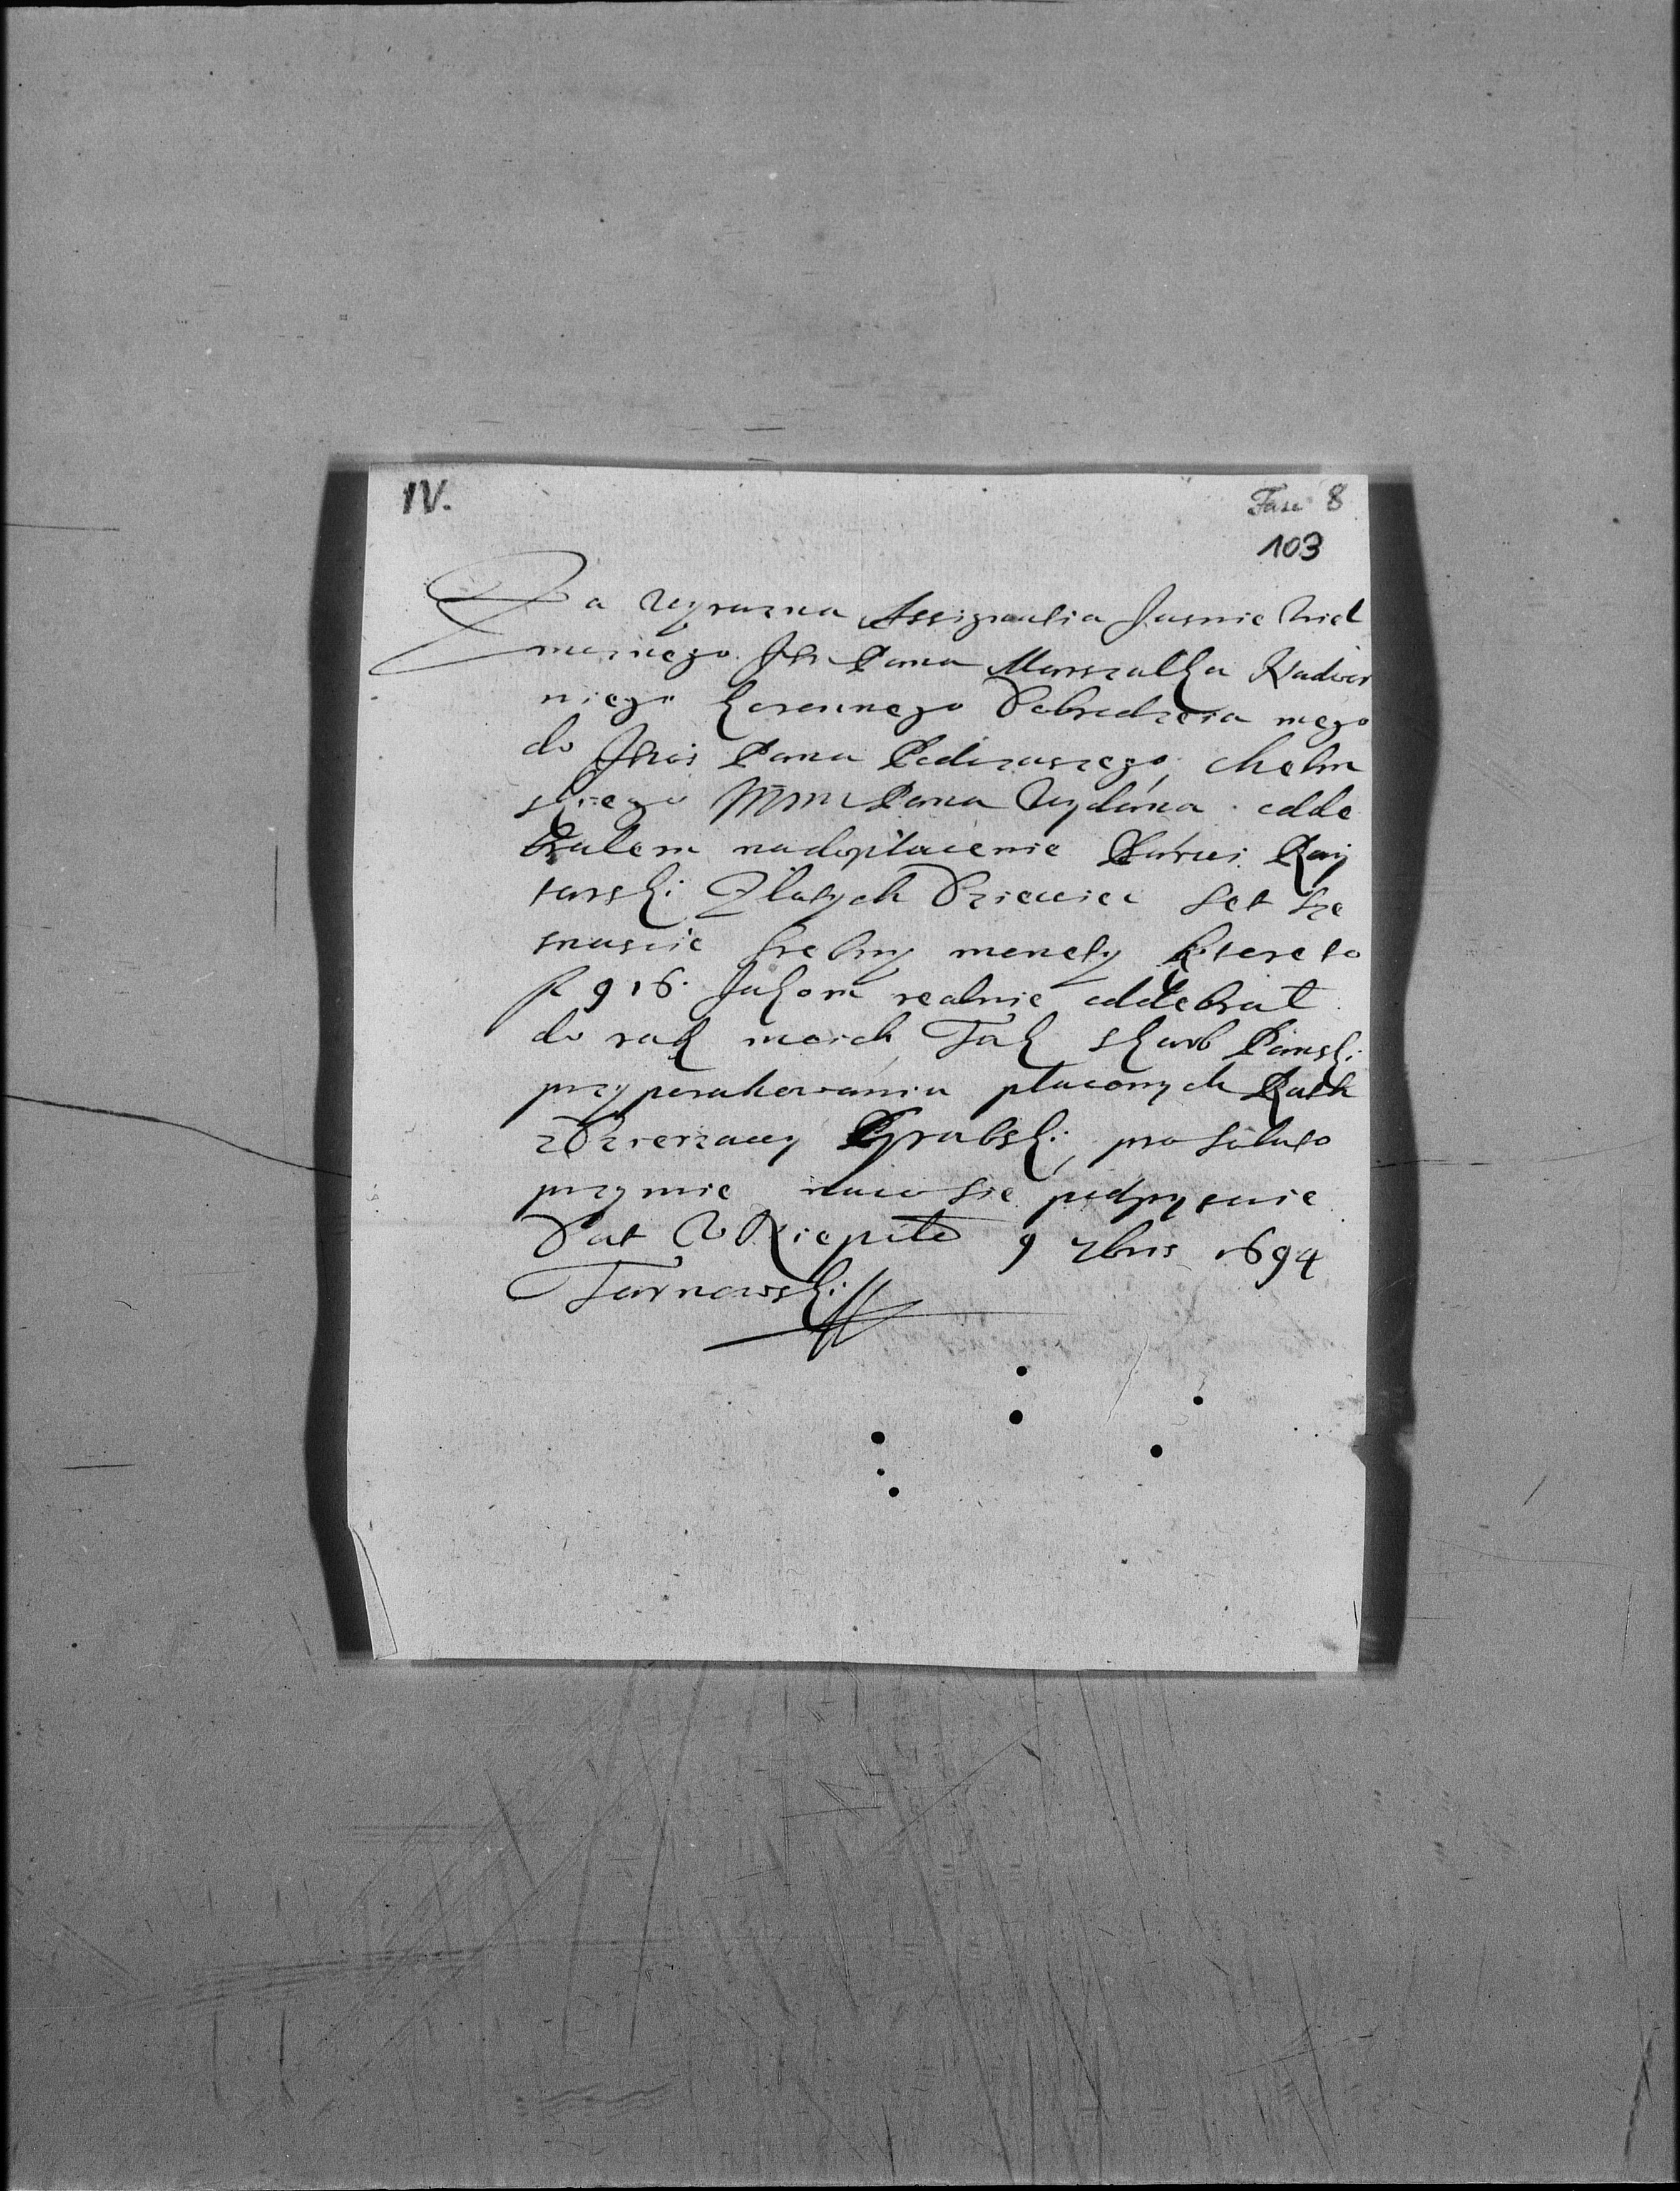 IV.
Fasc 8
103
Za wyrazna Assignatia Jasnie Wiel
moznego Jm Pana Marszalka Nadwor
niego koronnego Dobrodzeia mego
do Jmci Pana Podczaszego chelm
skiego Mm Pana wydana odde
brałem nadopłacenie Ray
tarski Złotych Dziewiec Set sze
snascie srebny monety ktore to
f 916. Jakom realnie oddebrał
do rąk moich Tak skarb Panski
przyporahowaniu płaconych Rath
zDzierzawy pro soluto
przymie naco sie podpysuie
Dat W 9 7bris 1694
Tarnowski